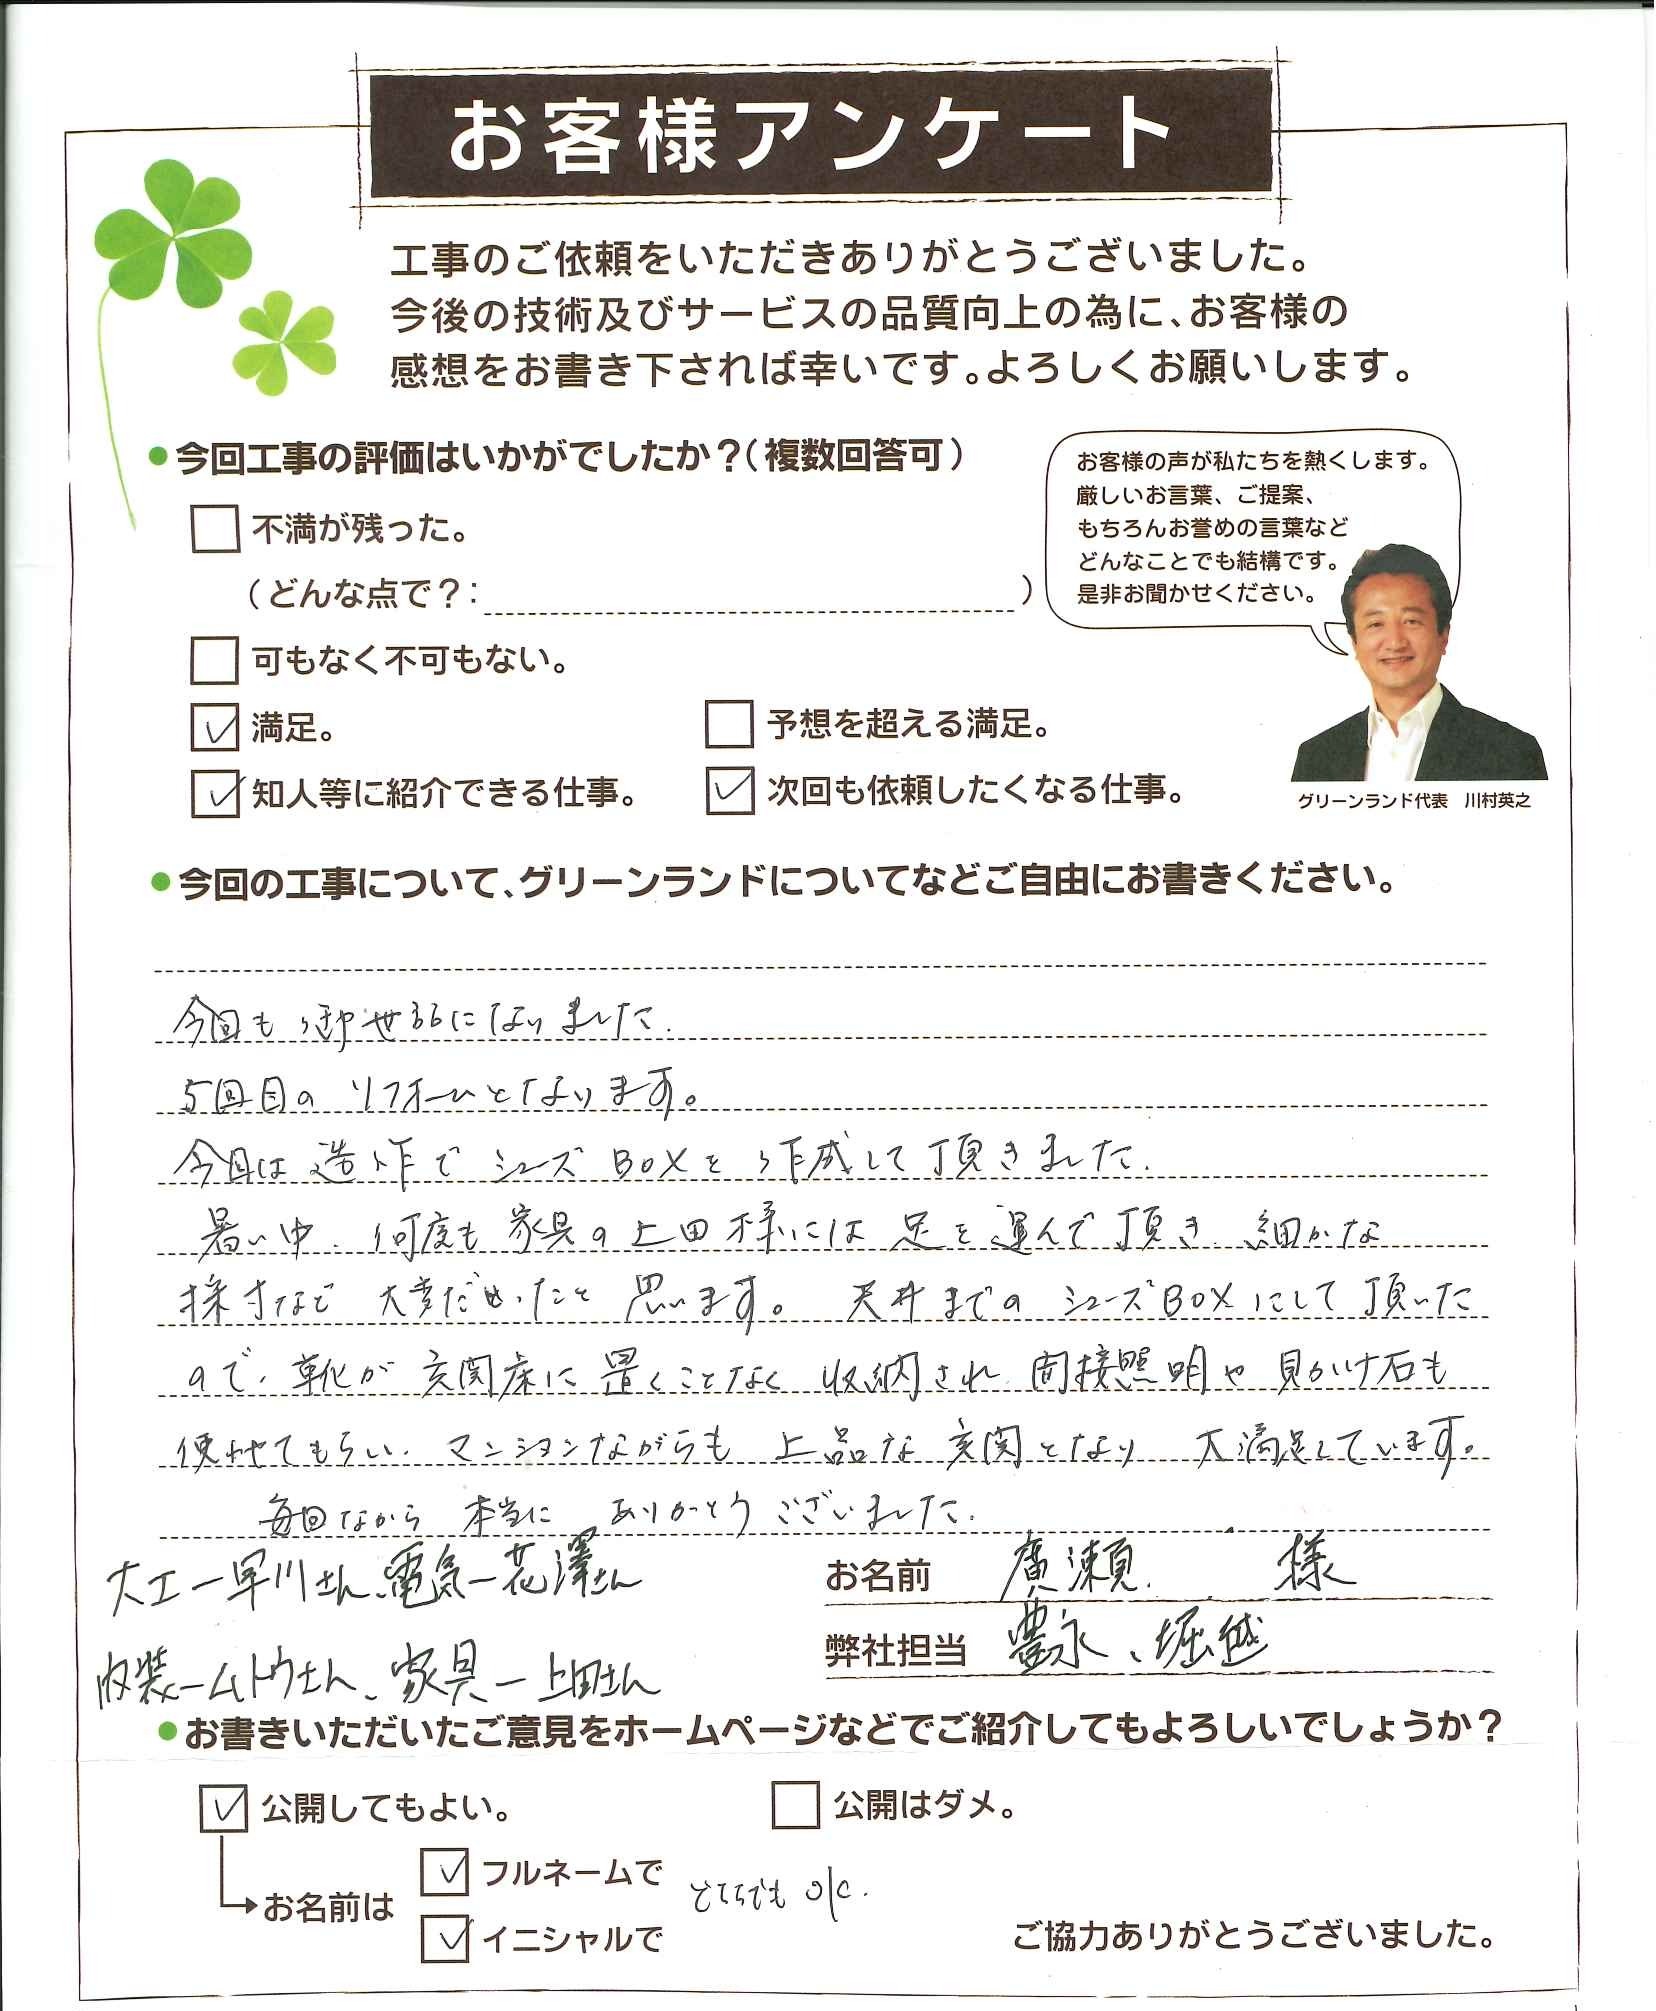 お客様アンケート
工事のご依頼をいただきありがとうございました。
今後の技術及びサービスの品質向上の為に、お客様の
感想をお書き下されば幸いです。よろしくお願いします。
●今回工事の評価はいかがでしたか？(複数回答可)
お客様の声が私たちを熱くします。
厳しいお言葉、ご提案、
もちろんお誉めの言葉など
どんなことでも結構です。
是非お聞かせください。
不満が残った。
(どんな点で？: )
可もなく不可もない。
満足。
予想を超える満足。
知人等に紹介できる仕事。
次回も依頼したくなる仕事。
グリーンランド代表 川村英之
●今回の工事について、グリーンランドについてなどご自由にお書きください。
今回も御世話になりました.
5回目のリフォームとなります。
今回は造作でシューズBOXを作成して頂きました.
暑い中、何度も家具の上田様には足を運んで頂き、細かな
採寸など大変だったと思います。天井までのシューズBOXにして頂いた
ので、靴が玄関床に置くことなく収納され、間接照明や見かけ石も
使わせてもらい、マンションながらも上品な玄関となり大満足しています。
毎回ながら本当にありがとうございました.
大工ー早川さん、電気ー花澤さん
内装ームトウさん、家具ー上田さん
お名前 廣瀬 様
弊社担当 豊永、堀越
●お書きいただいたご意見をホームページなどでご紹介してもよろしいでしょうか？
公開してもよい。
公開はダメ。
お名前は
フルネームで
イニシャルで
どちらでもOK.
ご協力ありがとうございました。